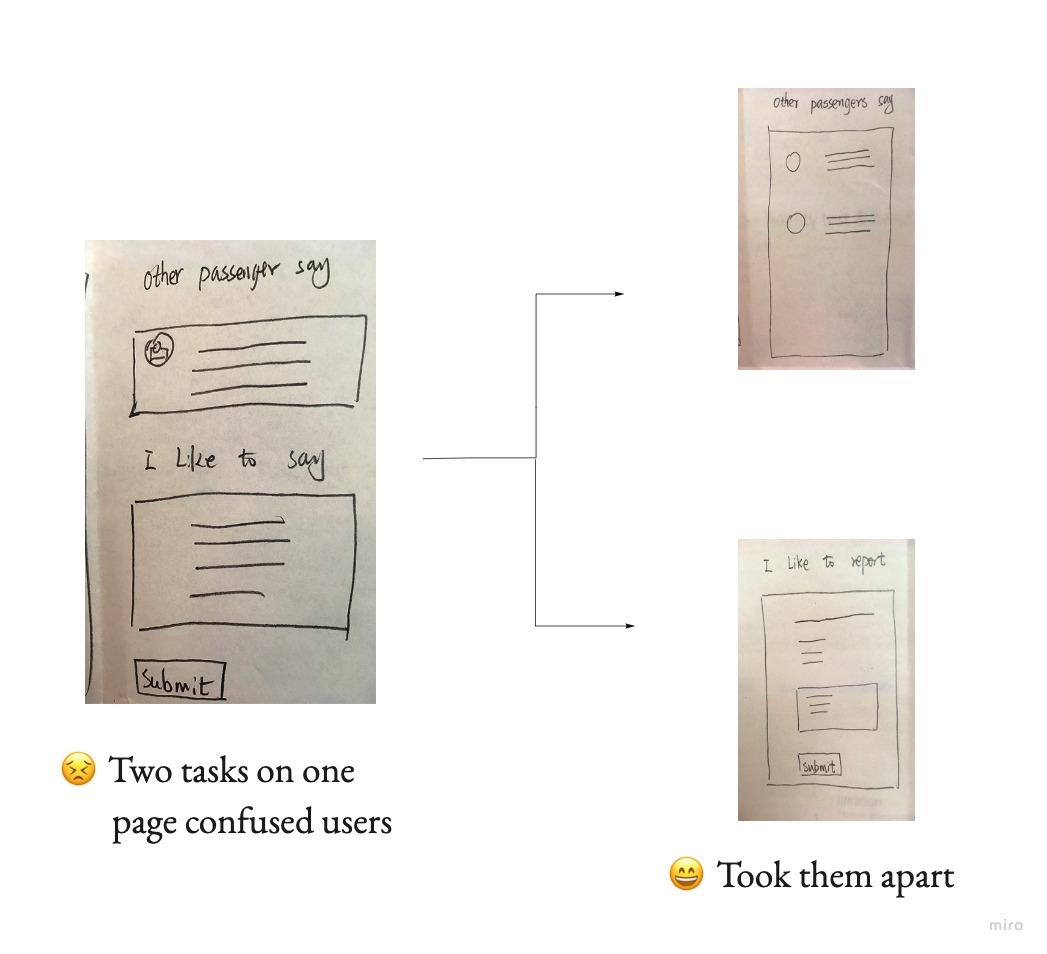 other passenger say
I Like to say
Submit
😣 Two tasks on one
page confused users
other passengers say
I Like to report
Submit
😄 Took them apart
miro